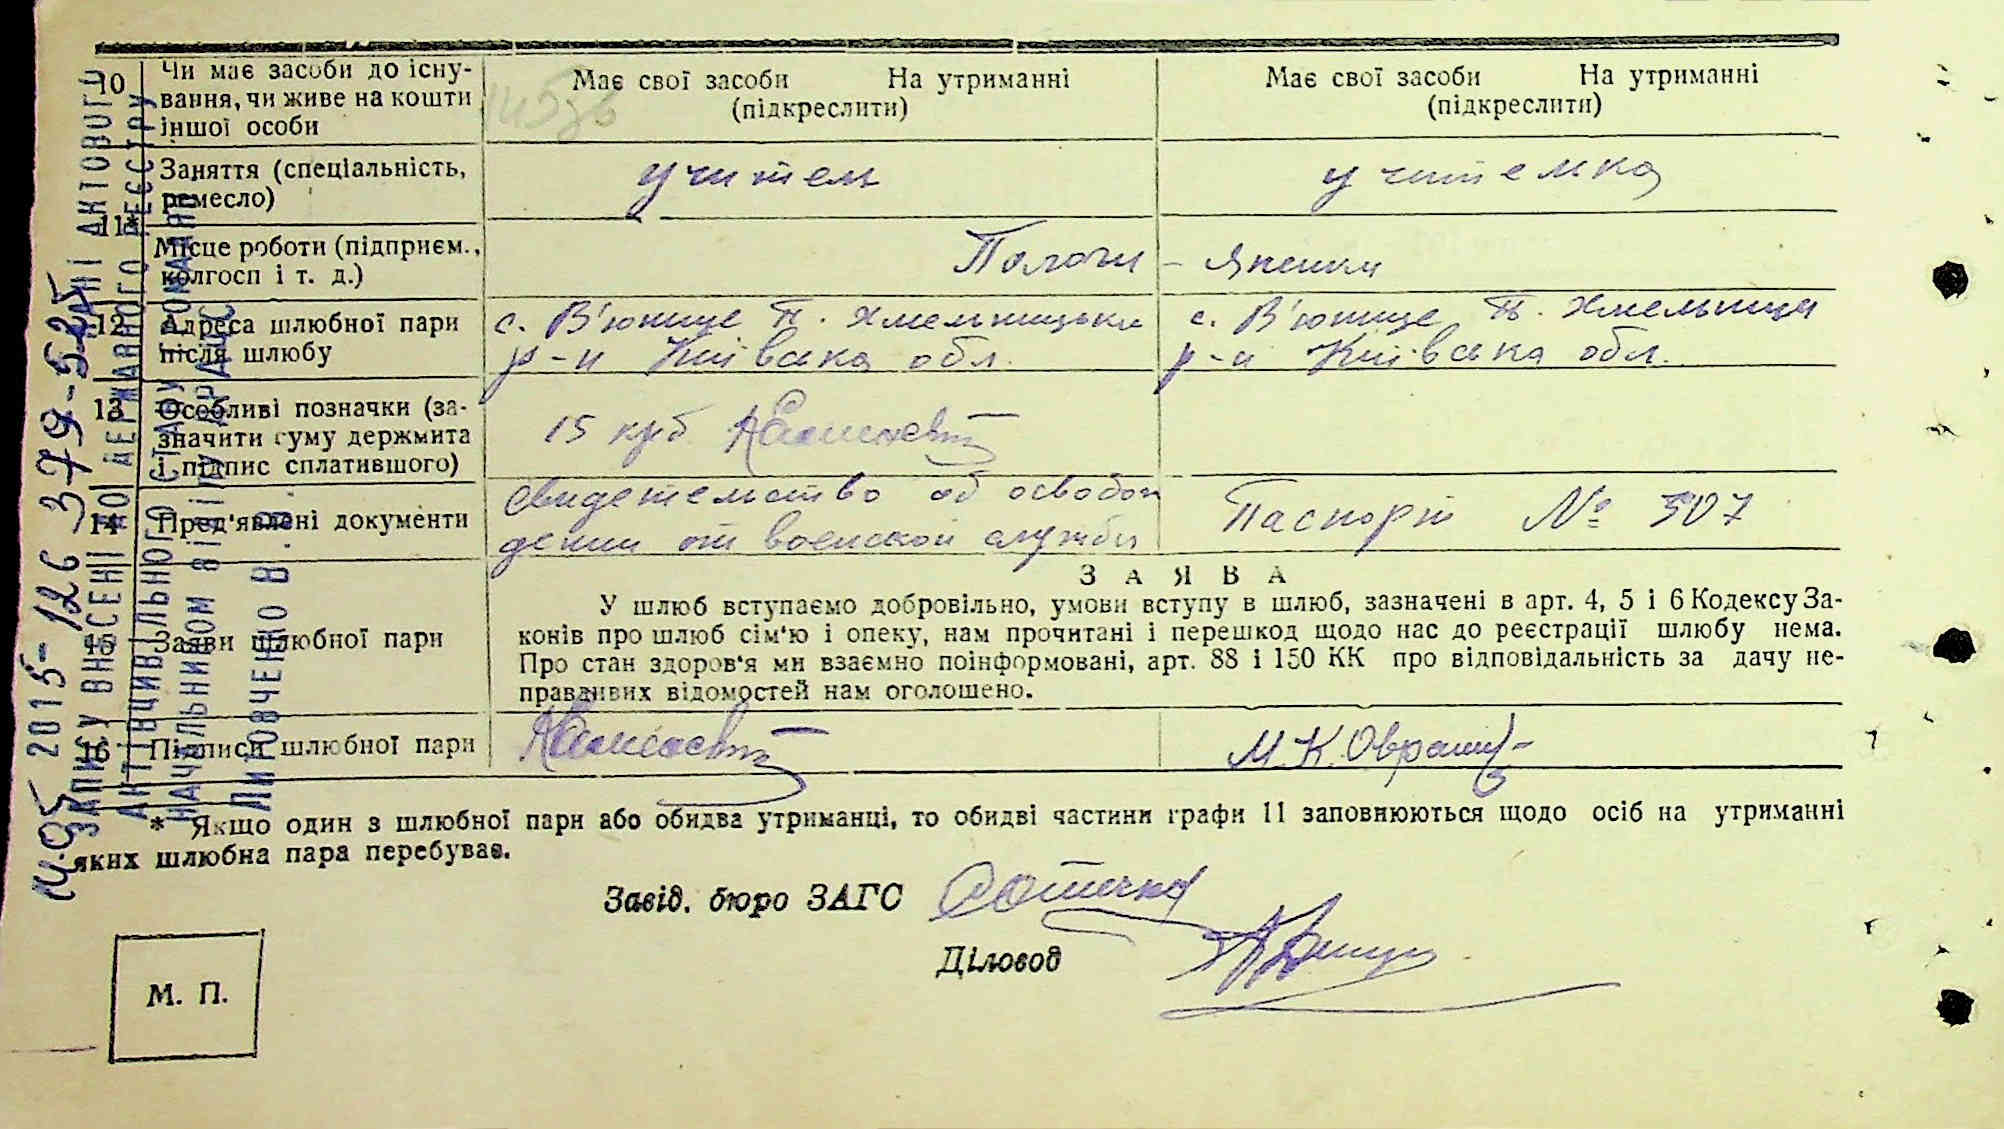 10 Чи має засоби до існу-
вання, чи живе на кошти
іншої особи
Має свої засоби На утриманні
(підкреслити)
Має свої засоби На утриманні
(підкреслити)
11* Заняття (спеціальність,
ремесло)
учитель
учителька
Місце роботи (підприєм.,
колгосп і т. д.)
Пологи - Яненки
12 Адреса шлюбної пари
після шлюбу
с. В'юнище П. Хмельницьки
р-н Київська обл.
с. В'юнище П. Хмельници
р-н Київська обл.
13 Особливі позначки (за-
значити суму держмита
і підпис сплатившого)
15 крб.
14 Пред'явлені документи
свидетельство об освобож
дении от воинской службы
Паспорт № 507
15 Заяви шлюбної пари
ЗАЯВА
У шлюб вступаємо добровільно, умови вступу в шлюб, зазначені в арт. 4, 5 і 6 Кодексу За-
конів про шлюб сім'ю і опеку, нам прочитані і перешкод щодо нас до реєстрації шлюбу нема.
Про стан здоров'я ми взаємно поінформовані, арт. 88 і 150 КК про відповідальність за дачу не-
правдивих відомостей нам оголошено.
16 Підписи шлюбної пари
М. К.
* Якщо один з шлюбної пари або обидва утриманці, то обидві частини графи 11 заповнюються щодо осіб на утриманні
яких шлюбна пара перебуває.
Завід. бюро ЗАГС
Діловод
М. П.
ЗАПИСУ ВНЕСЕНІ ДО ДЕРЖАВНОГО РЕЄСТРУ
АКТІВ ЦИВІЛЬНОГО СТАНУ ГРОМАДЯН
НАЧАЛЬНИКОМ ВІДДІЛУ ДРАЦС